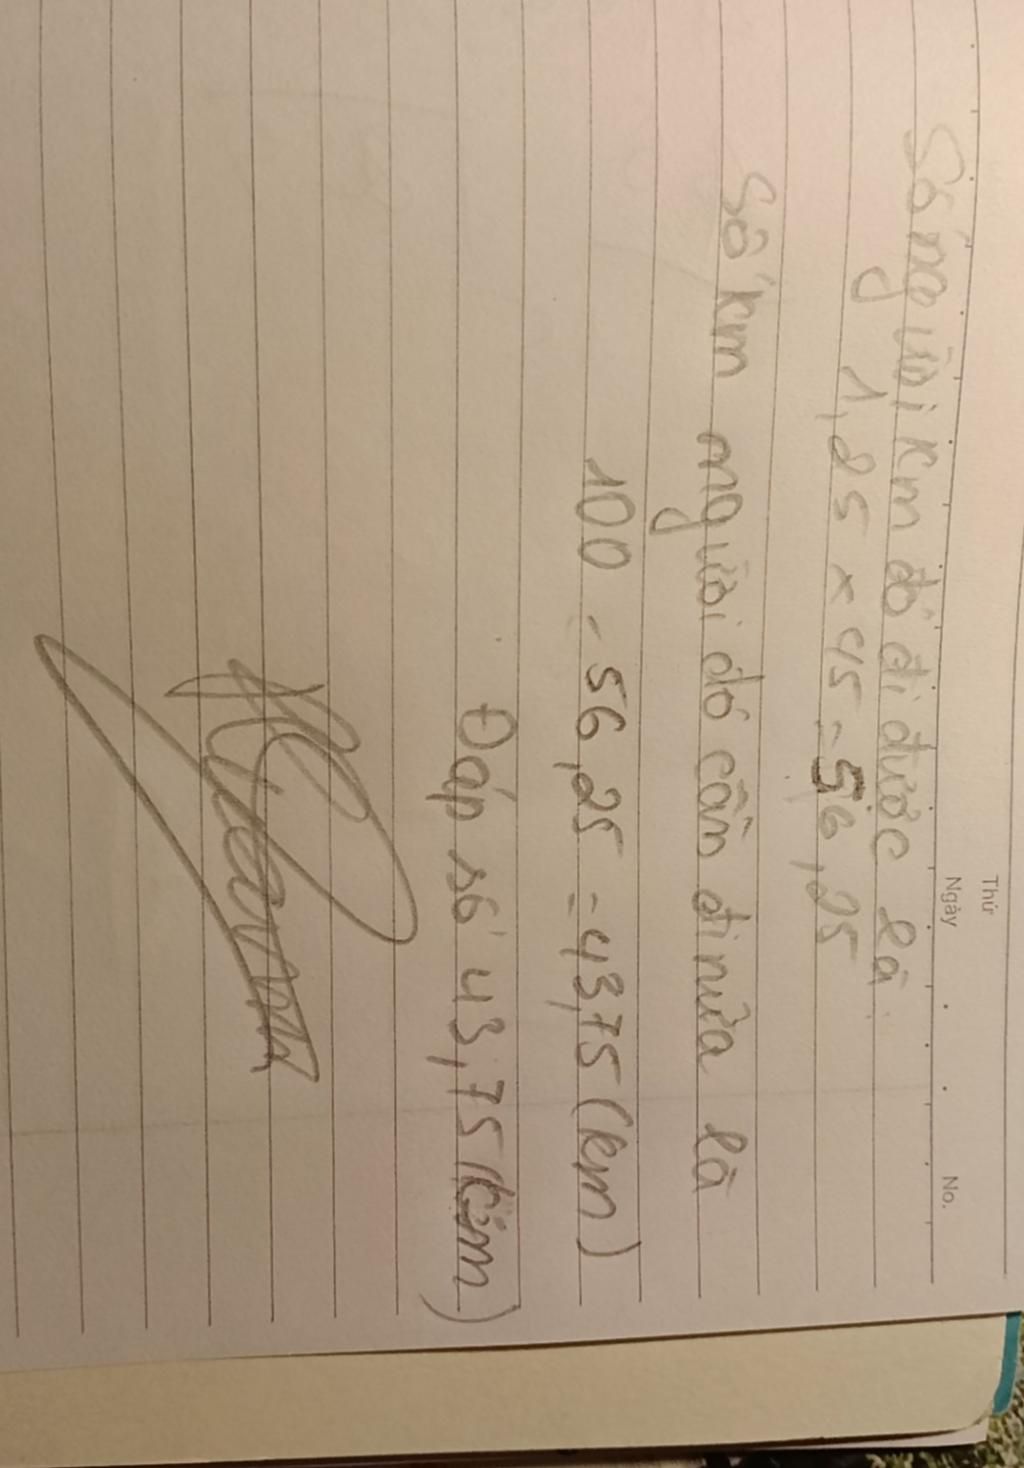 Thứ
Ngày No.
Số người km đó đi được là
1,25 x 45 = 56,25
Số km người đó cần đi nữa là
100 - 56,25 = 43,75 (km)
Đáp số 43,75 (km)